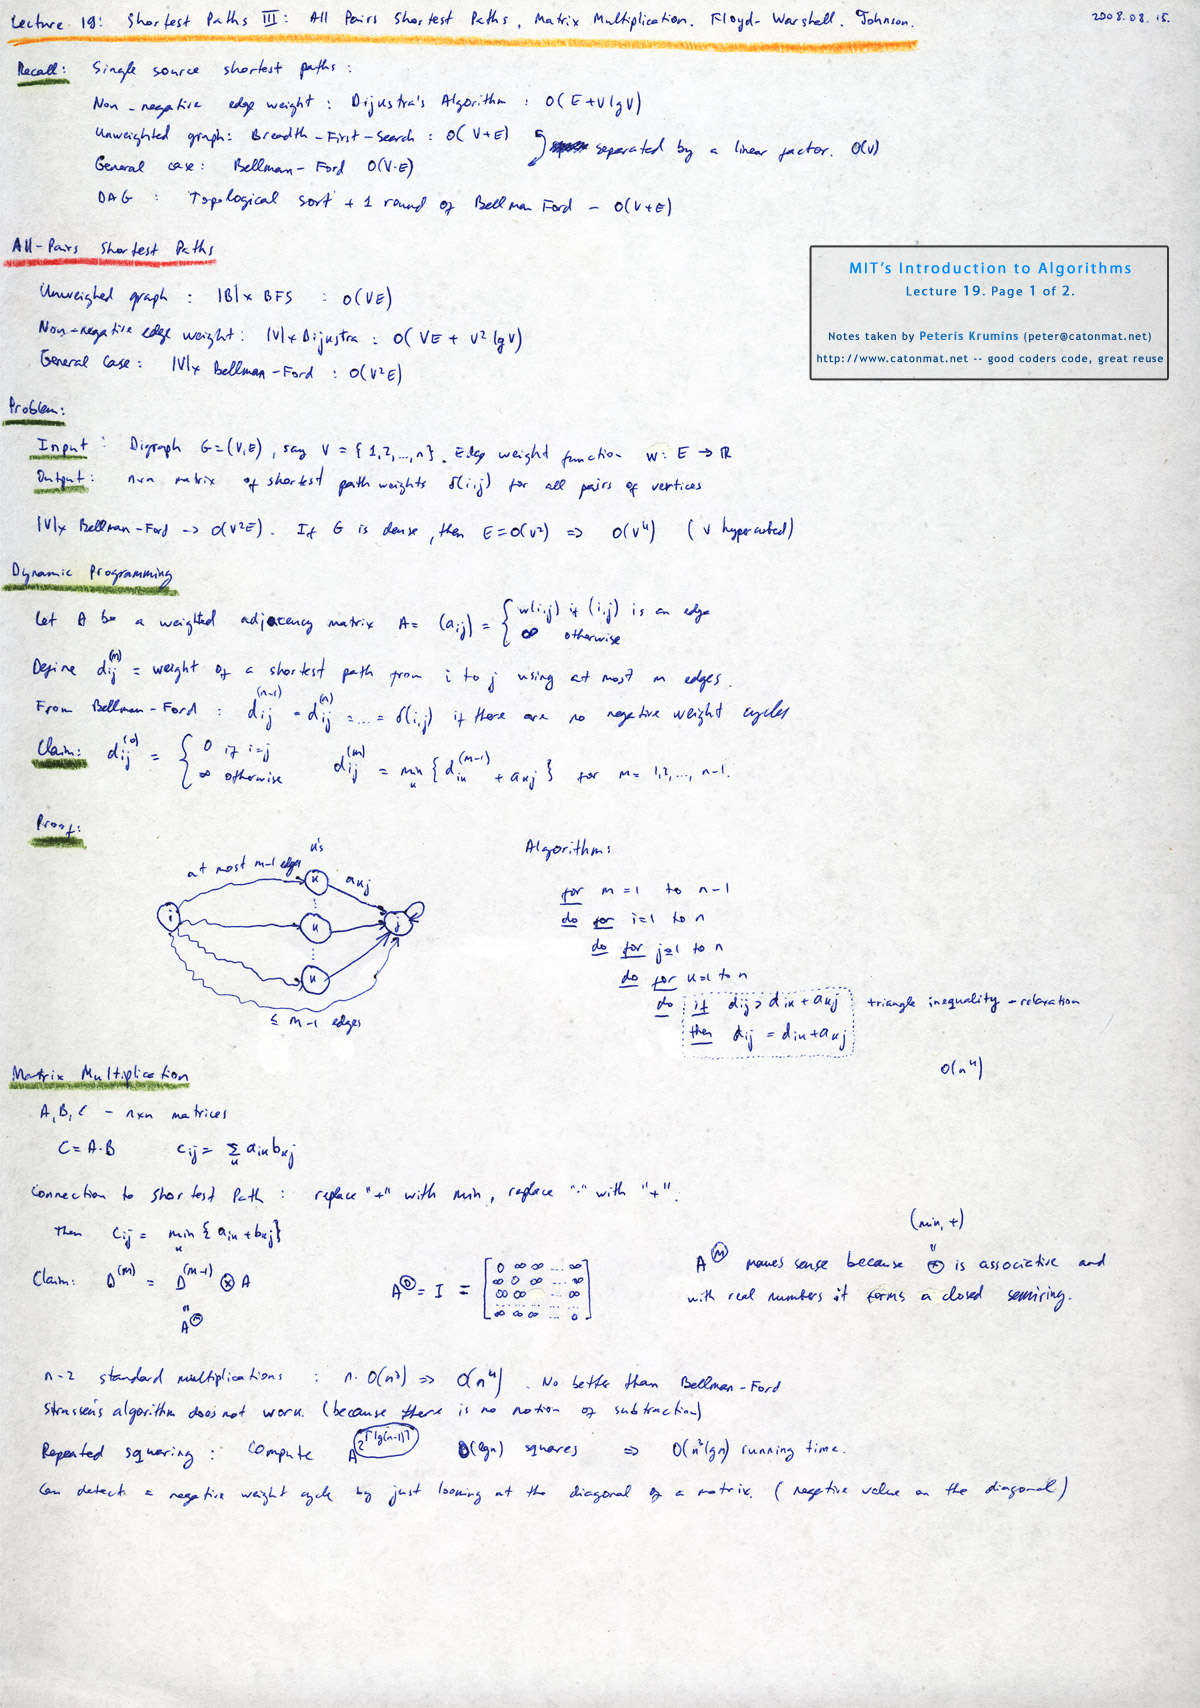 Lecture 19: Shortest Paths III: All Pairs Shortest Paths, Matrix Multiplication. Floyd-Warshall. Johnson. 2008.08.15.
Recall: Single source shortest paths:
Non-negative edge weight: Dijkstra's Algorithm: O(E+VlgV)
Unweighted graph: Breadth-First-Search: O(V+E)
separated by a linear factor. O(V)
General case: Bellman-Ford O(V·E)
DAG: Topological sort + 1 round of Bellman Ford - O(V+E)
All-Pairs Shortest Paths
MIT's Introduction to Algorithms
Lecture 19. Page 1 of 2.
Notes taken by Peteris Krumins (peter@catonmat.net)
http://www.catonmat.net -- good coders code, great reuse
Unweighed graph: |B|x BFS : O(VE)
Non-negative edge weight: |V|x Dijkstra: O(VE + V² lgV)
General case: |V|x Bellman-Ford: O(V²E)
Problem:
Input: Digraph G=(V,E), say V = {1,2,...,n}. Edge weight function w: E → ℝ
Output: nxn matrix of shortest path weights δ(i,j) for all pairs of vertices
|V|x Bellman-Ford → O(V²E). If G is dense, then E=O(V²) => O(V⁴) (V hyper cubed)
Dynamic Programming
Let A be a weighted adjacency matrix A= (aij) = { w(i,j) if (i,j) is an edge
∞ otherwise
Define dij^(m) = weight of a shortest path from i to j using at most m edges.
From Bellman-Ford: dij^(n-1) = dij^(n) = ... = δ(i,j) if there are no negative weight cycles
Claim: dij^(0) = { 0 if i=j
∞ otherwise
dij^(m) = min k { dik^(m-1) + akj } for m=1,2,..., n-1.
Proof:
k's
at most m-1 edges
k
akj
i
k
j
k
≤ m-1 edges
Algorithm:
for m=1 to n-1
do for i=1 to n
do for j=1 to n
do for k=1 to n
do if dij > dik + akj
triangle inequality - relaxation
then dij = dik+akj
O(n⁴)
Matrix Multiplication
A,B,C - nxn matrices
C=A·B cij= Σk aik bkj
Connection to Shortest Path: replace "+" with min, replace "·" with "+".
then cij = min k {aik + bkj}
(min,+)
Claim: D^(m) = D^(m-1) ⊗ A
" A^(m)
A^(0) = I = [ 0 ∞ ∞ ... ∞
∞ 0 ∞ ... ∞
∞ ∞ ... ∞
∞ ∞ ∞ ... 0 ]
A^(m) makes sense because ⊗ is associative and
with real numbers it forms a closed semiring.
n-2 standard multiplications: n·O(n³) => O(n⁴). No better than Bellman-Ford
Strassen's algorithm does not work. (because there is no notion of subtraction)
Repeated squaring: Compute A^(2^⌈lg(n-1)⌉) O(lgn) squares => O(n³lgn) running time.
Can detect a negative weight cycle by just looking at the diagonal of a matrix. (negative value on the diagonal)